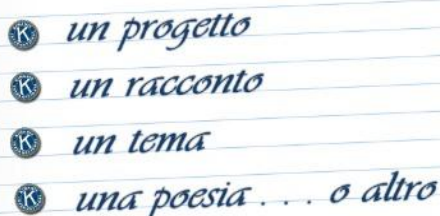 un progetto
un racconto
un tema
una poesia . . . o altro